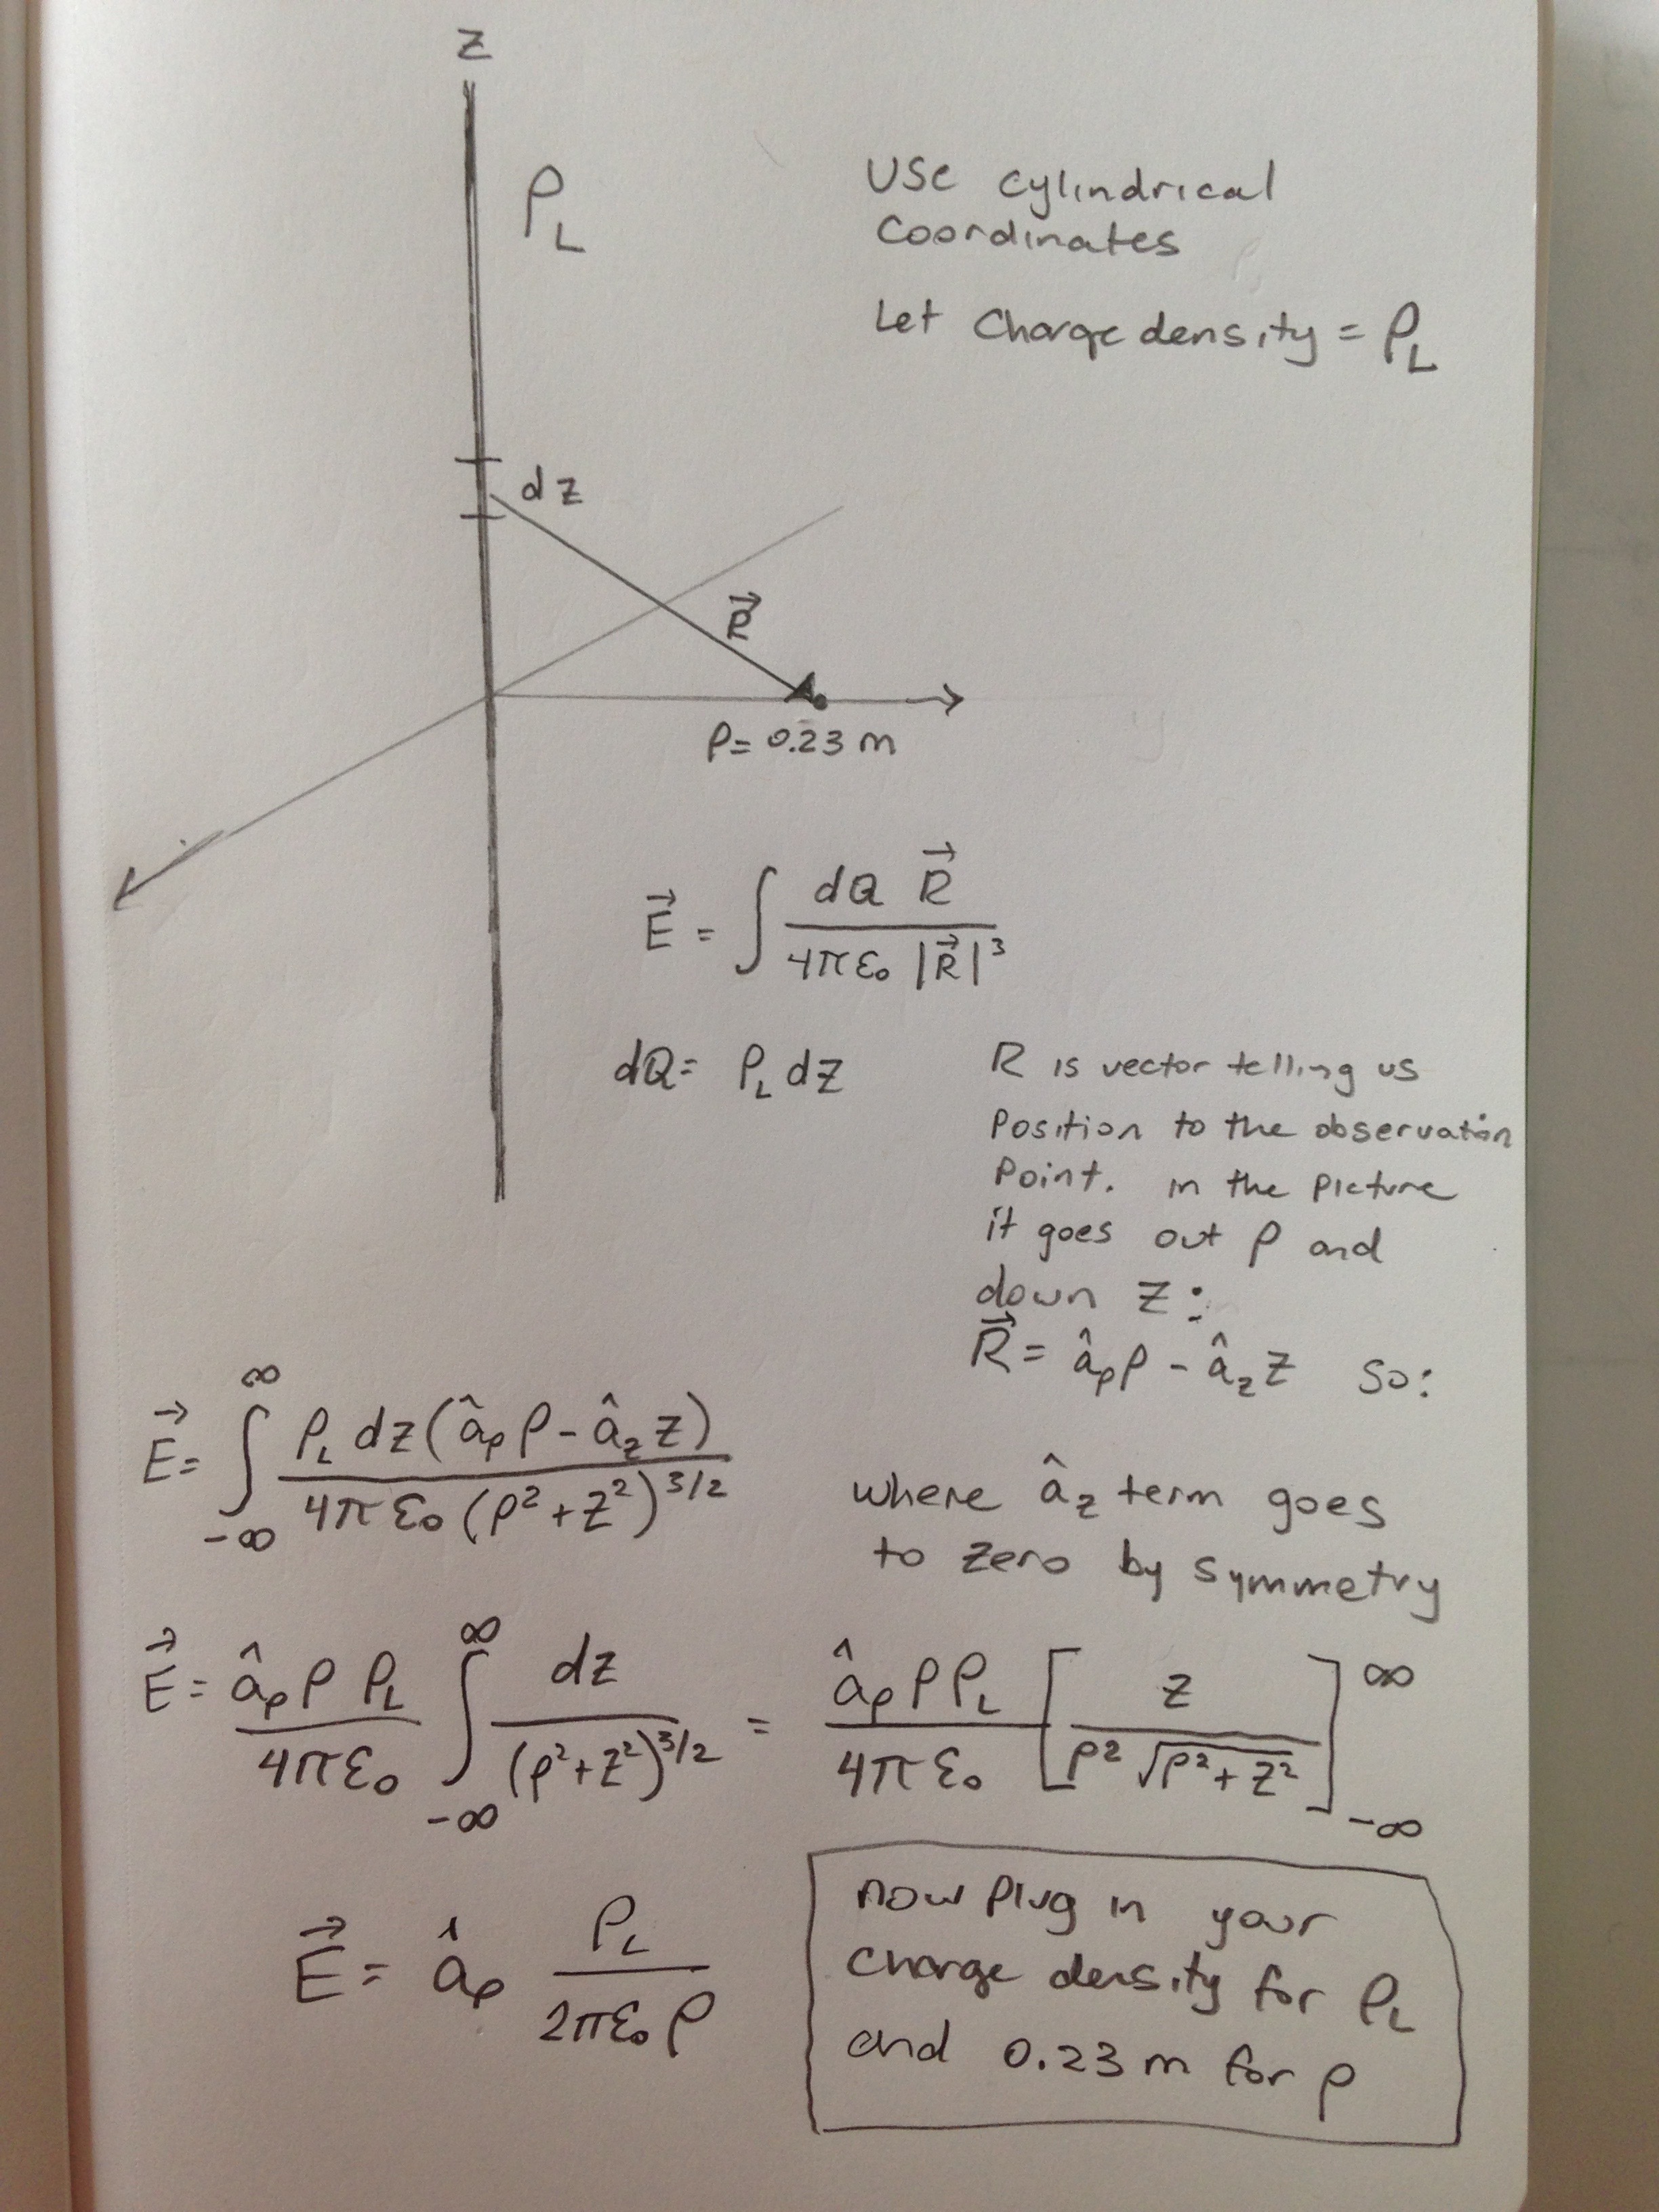 z
ρ_L
Use cylindrical
Coordinates
Let Charge density = ρ_L
dz
R⃗
ρ = 0.23 m
E⃗ = ∫ dQ R⃗ / 4πε₀ |R⃗|³
dQ = ρ_L dz
R is vector telling us
Position to the observation
Point. in the picture
it goes out ρ and
down z:
R⃗ = â_ρ ρ - â_z z so:
E⃗ = ∫_{-∞}^{∞} ρ_L dz (â_ρ ρ - â_z z) / 4πε₀ (ρ² + z²)^{3/2}
where â_z term goes
to zero by symmetry
E⃗ = â_ρ ρ ρ_L / 4πε₀ ∫_{-∞}^{∞} dz / (ρ² + z²)^{3/2} = â_ρ ρ ρ_L / 4πε₀ [ z / ρ² √(ρ² + z²) ]_{-∞}^{∞}
E⃗ = â_ρ ρ_L / 2πε₀ ρ
now plug in your
charge density for ρ_L
and 0.23 m for ρ